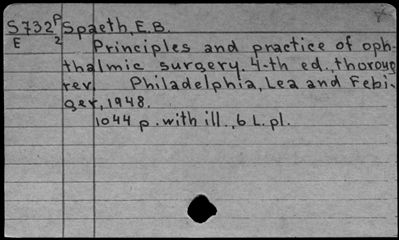 S732P Spaeth, E.B.
E 2
Principles and practice of oph-
thalmic surgery. 4-th ed., thoroug
rev. Philadelphia, Lea and Febi-
ger, 1948.
1044 p. with ill., 6 L. pl.